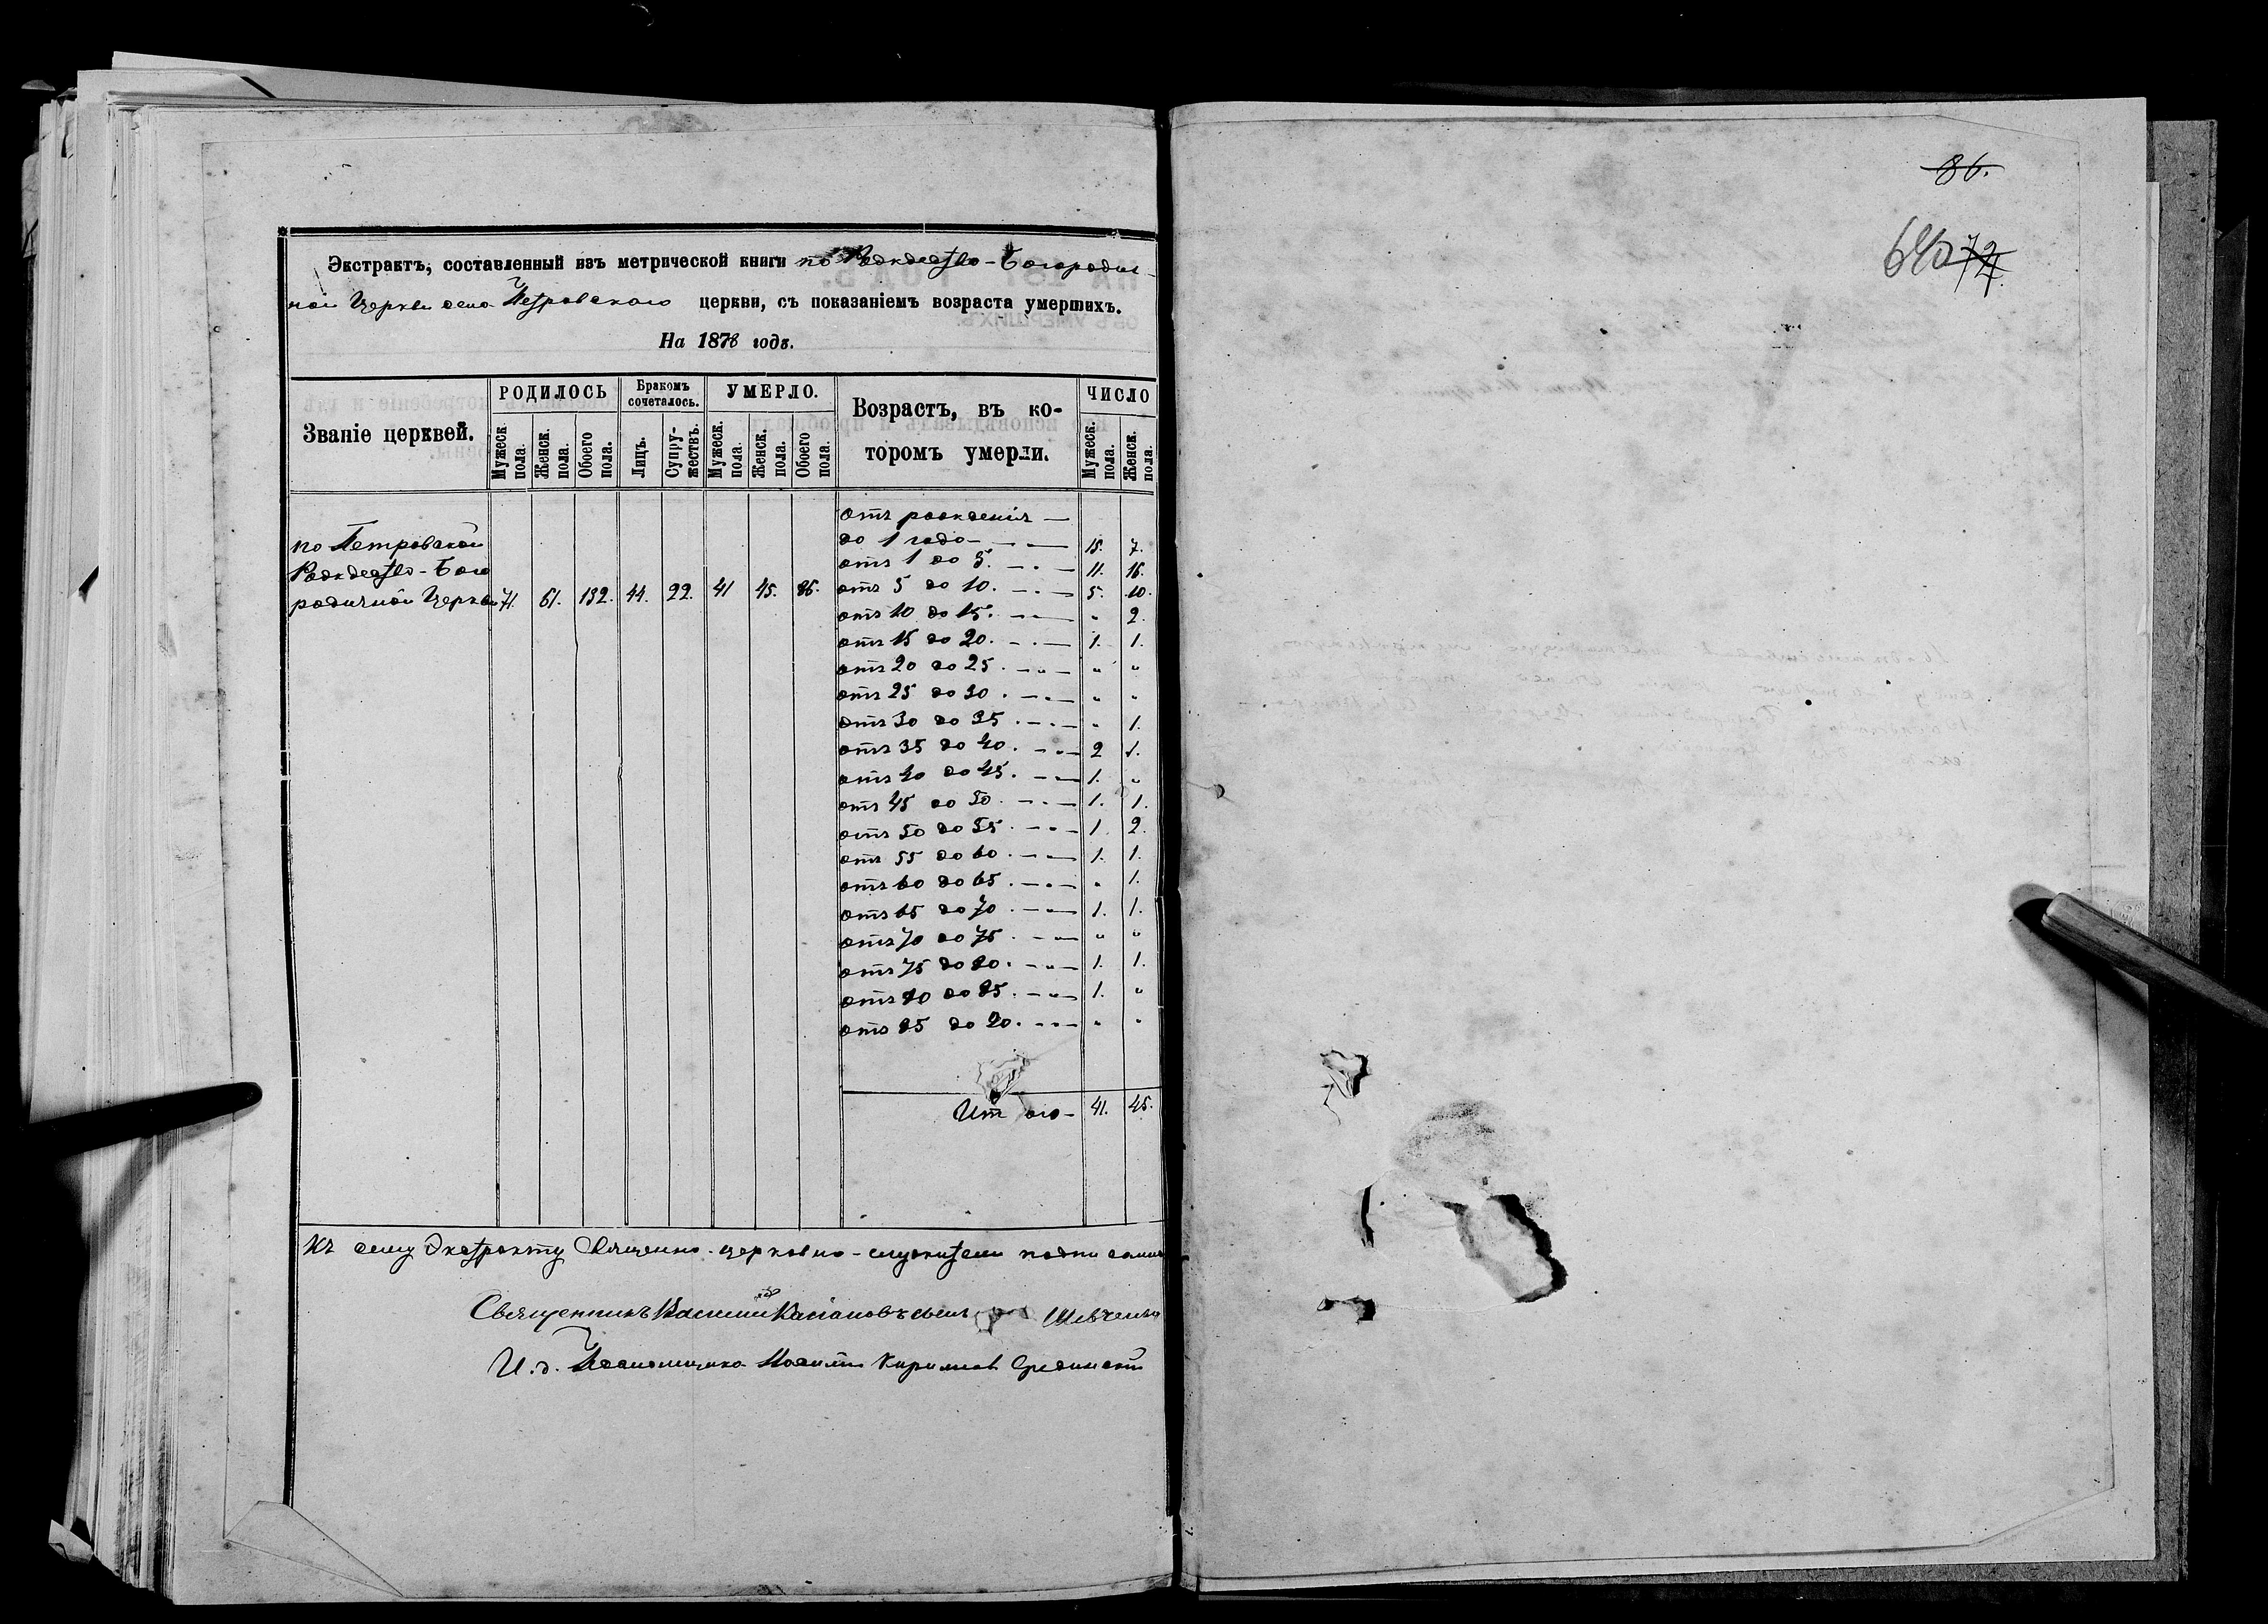 Экстрактъ, составленный изъ метрической книги по Рождество-Богородич-
ной Церкви села Петровскаго церкви, съ показаніемъ возраста умершихъ.
На 1878 годъ.
Званіе церквей.
РОДИЛОСЬ
Мужеск. пола.
Женск. пола.
Обоего пола.
Бракомъ сочеталось.
Лицъ.
Супру-жествъ.
УМЕРЛО.
Мужеск. пола.
Женск. пола.
Обоего пола.
Возрастъ, въ ко-
торомъ умерли.
ЧИСЛО
Мужеск. пола.
Женск. пола.
по Петровской
Рождество-Бого
родичной Церкви 71. 61. 132. 44. 22. 41 45. 86.
отъ рожденія —
до 1 года — 15. 7.
отъ 1 до 5. — 11. 16.
отъ 5 до 10. — 5. 10.
отъ 10 до 15. — " 2.
отъ 15 до 20. — 1. 1.
отъ 20 до 25. — " "
отъ 25 до 30. — " "
отъ 30 до 35. — " 1.
отъ 35 до 40. — 2 1.
отъ 40 до 45. — 1. "
отъ 45 до 50. — 1. 1.
отъ 50 до 55. — 1. 2.
отъ 55 до 60. — 1. 1.
отъ 60 до 65. — " 1.
отъ 65 до 70. — 1. 1.
отъ 70 до 75. — " "
отъ 75 до 80. — 1. 1.
отъ 80 до 85. — 1. "
отъ 85 до 90. — " "
Итого — 41. 45.
Къ сему Экстракту Священно-церковно-служители подписались
Священникъ Василій Касіановъ сынъ Шевченко
И.д. Псаломщика Кирилловъ
86.
640
72